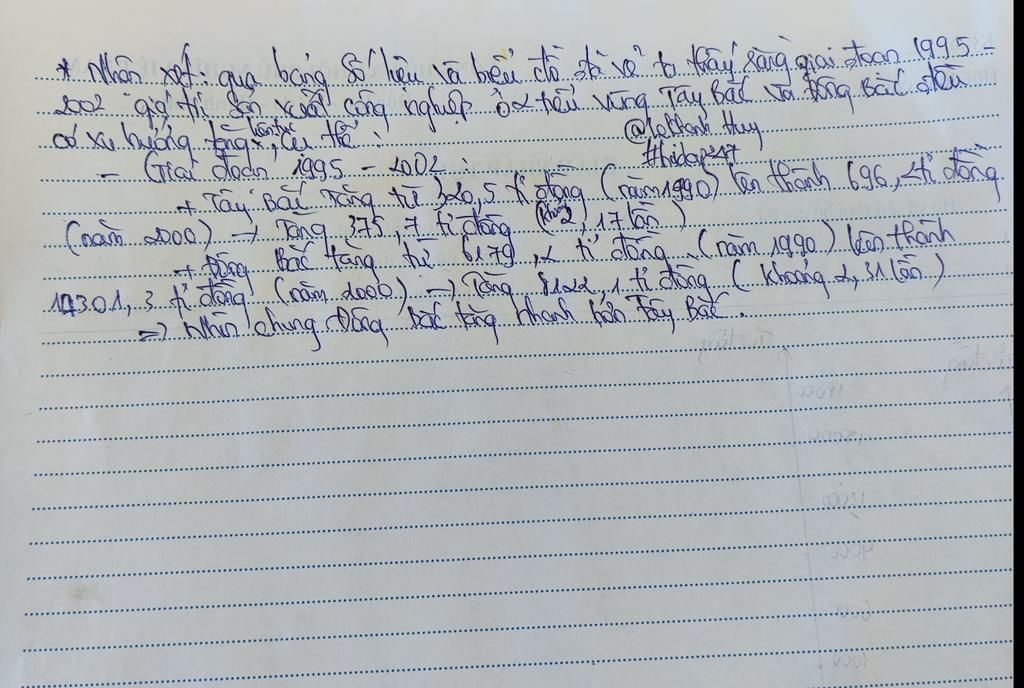 * Nhận xét: qua bảng số liệu và biểu đồ đã vẽ ta thấy rằng giai đoạn 1995 -
2002 giá trị sản xuất công nghiệp ở 2 tiểu vùng Tây Bắc và Đông Bắc đều
có xu hướng tăng liên tục, cụ thể:
@lethanh Huy
#hidap247
- Giai đoạn 1995 - 2002:
+ Tây Bắc tăng từ 320,5 tỉ đồng (năm 1990) lên thành 696,2 tỉ đồng
(năm 2000) → Tăng 375,7 tỉ đồng (khoảng 2,17 lần)
+ Đông Bắc tăng từ 6179,2 tỉ đồng (năm 1990) lên thành
14301,3 tỉ đồng (năm 2000) → Tăng 8122,1 tỉ đồng (khoảng 2,31 lần)
=> Nhìn chung Đông Bắc tăng nhanh hơn Tây Bắc.